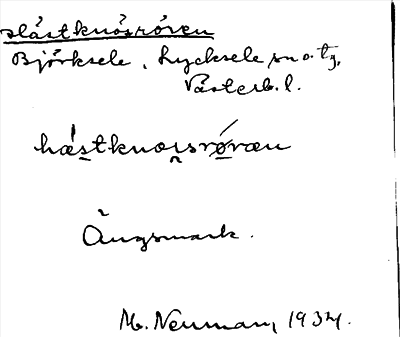 Hästknösrören
Björksele, Lycksele sn o. tg,
Västerb. l.
hæstknoısrøræn
Ängsmark.
M. Neuman, 1934.